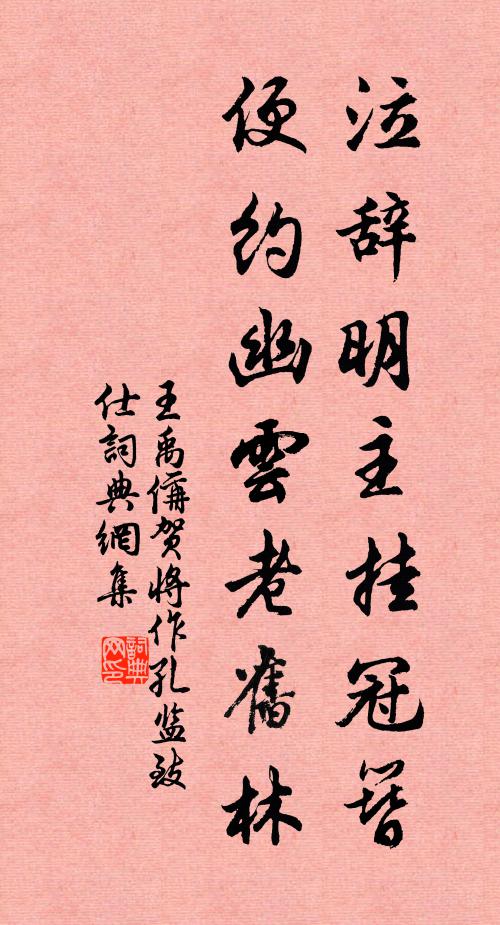 泣辞明主挂冠簪
便约幽雲老舊林
王禹偁贺将作孔监致
仕詞典網集
詞典网印